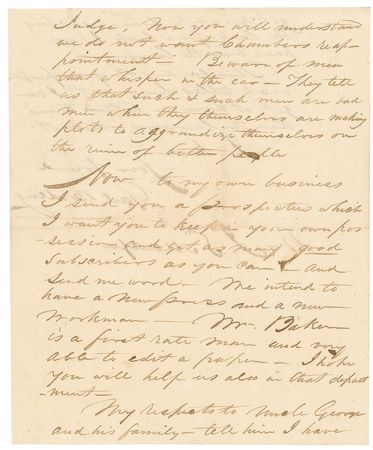 Judge, Now you will understand
we do not want Chambers reap-
pointment - Beware of men
that whisper in the ear - They tell
us that such & such men are bad
men when they themselves are making
plots to aggrandize themselves on
the ruin of better people
Now to my own business
I send you a prospectus which
I want you to keep in your own pos-
session and get as many good
subscribers as you can - and
send me word - We intend to
have a new press and a new
workman - Mr. Baker
is a first rate man and very
able to edit a paper - I hope
you will help us also in that depart
-ment -
My respects to Uncle George
and his family - tell him I have